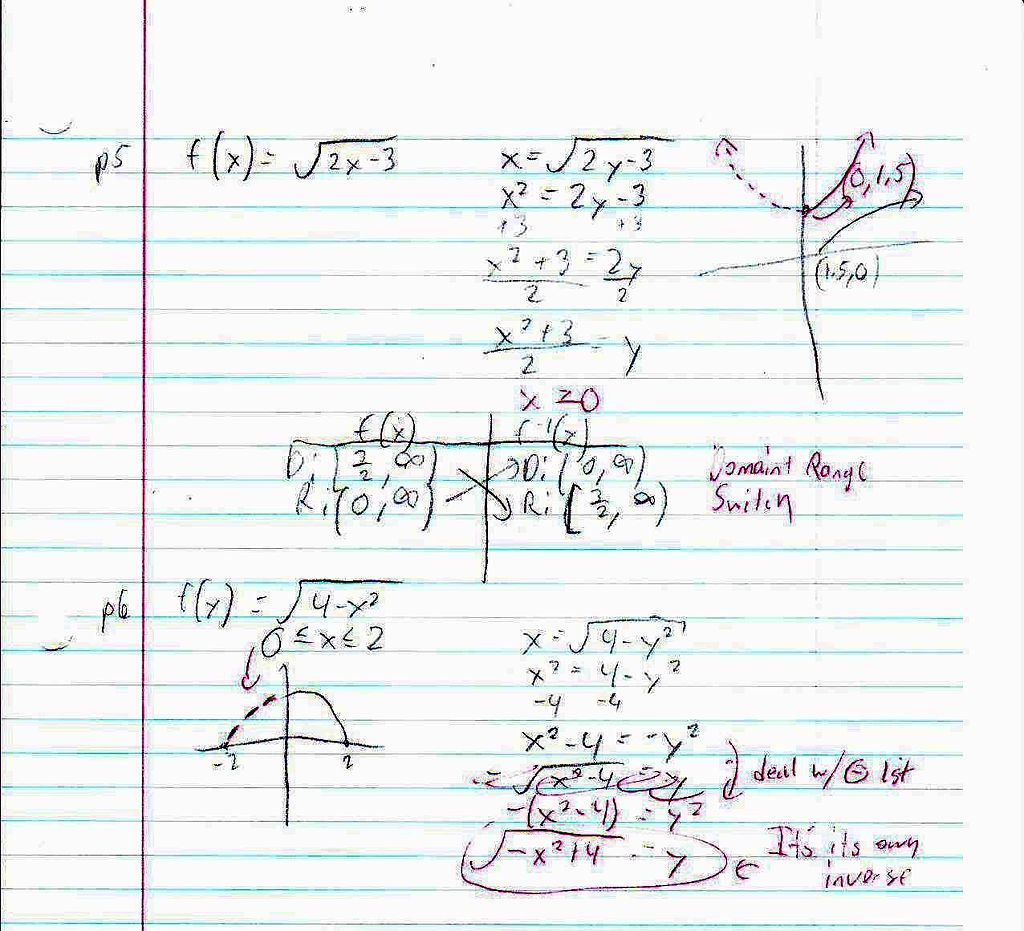 p5
f(x) = √(2x-3)
x = √(2y-3)
x² = 2y-3
+3 +3
x²+3 = 2y
2 2
x²+3 = y
2
x ≥0
(0,1.5)
(1.5,0)
f(x) f⁻¹(x)
D: [3/2, ∞) D: (0, ∞)
R: (0, ∞) R: [3/2, ∞)
Domain+ Range
Switch
p6
f(x) = √(4-x²)
0 ≤ x ≤ 2
-2 2
x = √(4-y²)
x² = 4-y²
-4 -4
x²-4 = -y²
= √(x²-4) = y
-(x²-4) = y²
√(-x²+4) = y
deal w/ ⊖ 1st
It's its own
inverse